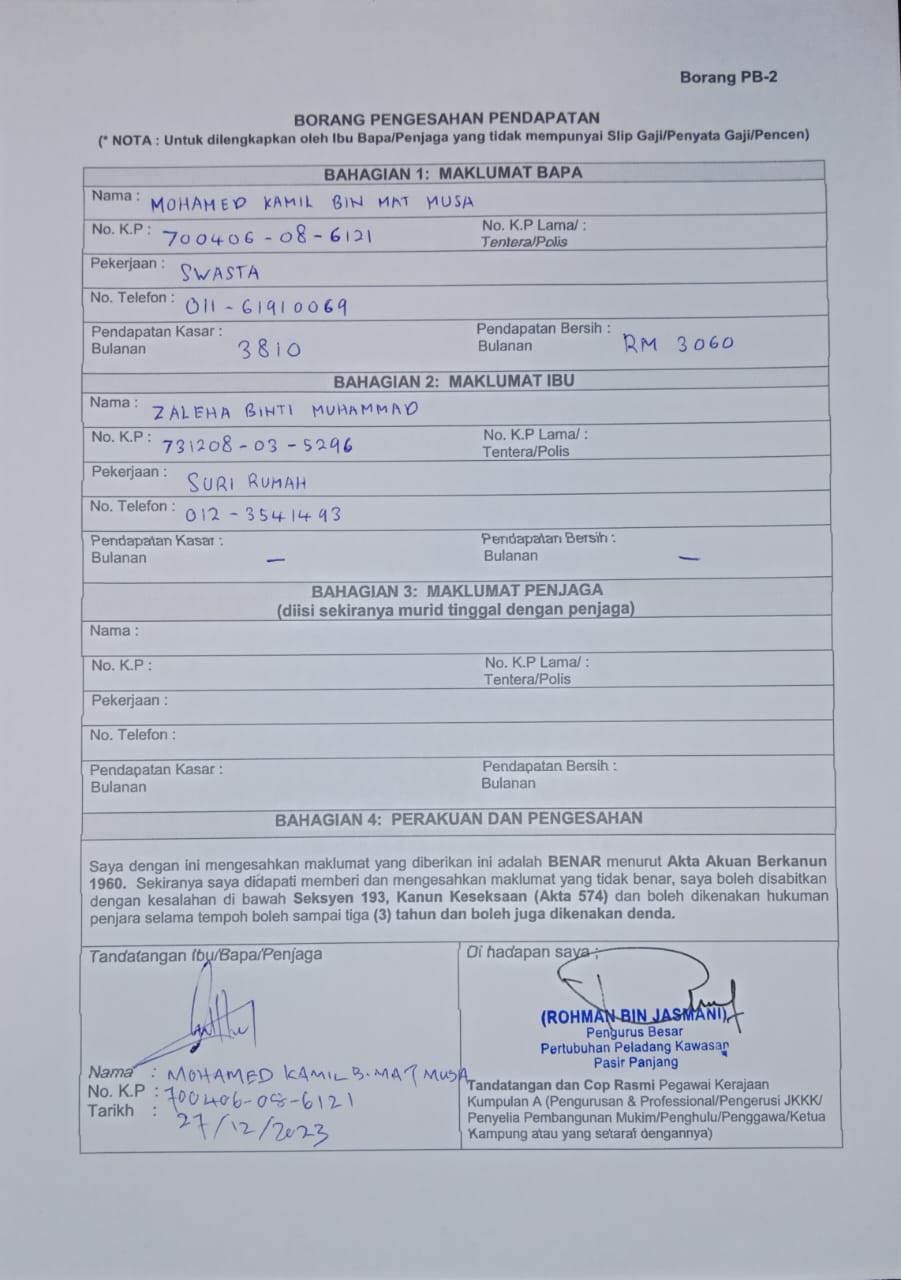 Borang PB-2
BORANG PENGESAHAN PENDAPATAN
(* NOTA : Untuk dilengkapkan oleh Ibu Bapa/Penjaga yang tidak mempunyai Slip Gaji/Penyata Gaji/Pencen)
BAHAGIAN 1: MAKLUMAT BAPA
Nama : MOHAMED KAMIL BIN MAT MUSA
No. K.P : 700406-08-6121 No. K.P Lama/ :
Tentera/Polis
Pekerjaan : SWASTA
No. Telefon : 011-61910069
Pendapatan Kasar : Pendapatan Bersih :
Bulanan 3810 Bulanan RM 3060
BAHAGIAN 2: MAKLUMAT IBU
Nama : ZALEHA BINTI MUHAMMAD
No. K.P : 731208-03-5296 No. K.P Lama/ :
Tentera/Polis
Pekerjaan : SURI RUMAH
No. Telefon : 012-3541493
Pendapatan Kasar : Pendapatan Bersih :
Bulanan — Bulanan —
BAHAGIAN 3: MAKLUMAT PENJAGA
(diisi sekiranya murid tinggal dengan penjaga)
Nama :
No. K.P : No. K.P Lama/ :
Tentera/Polis
Pekerjaan :
No. Telefon :
Pendapatan Kasar : Pendapatan Bersih :
Bulanan Bulanan
BAHAGIAN 4: PERAKUAN DAN PENGESAHAN
Saya dengan ini mengesahkan maklumat yang diberikan ini adalah BENAR menurut Akta Akuan Berkanun
1960. Sekiranya saya didapati memberi dan mengesahkan maklumat yang tidak benar, saya boleh disabitkan
dengan kesalahan di bawah Seksyen 193, Kanun Keseksaan (Akta 574) dan boleh dikenakan hukuman
penjara selama tempoh boleh sampai tiga (3) tahun dan boleh juga dikenakan denda.
Tandatangan Ibu/Bapa/Penjaga
Nama : MOHAMED KAMIL B. MAT MUSA
No. K.P : 700406-08-6121
Tarikh : 27/12/2023
Di hadapan saya :
(ROHMAN BIN JASMANI)
Pengurus Besar
Pertubuhan Peladang Kawasan
Pasir Panjang
Tandatangan dan Cop Rasmi Pegawai Kerajaan
Kumpulan A (Pengurusan & Professional/Pengerusi JKKK/
Penyelia Pembangunan Mukim/Penghulu/Penggawa/Ketua
Kampung atau yang setaraf dengannya)